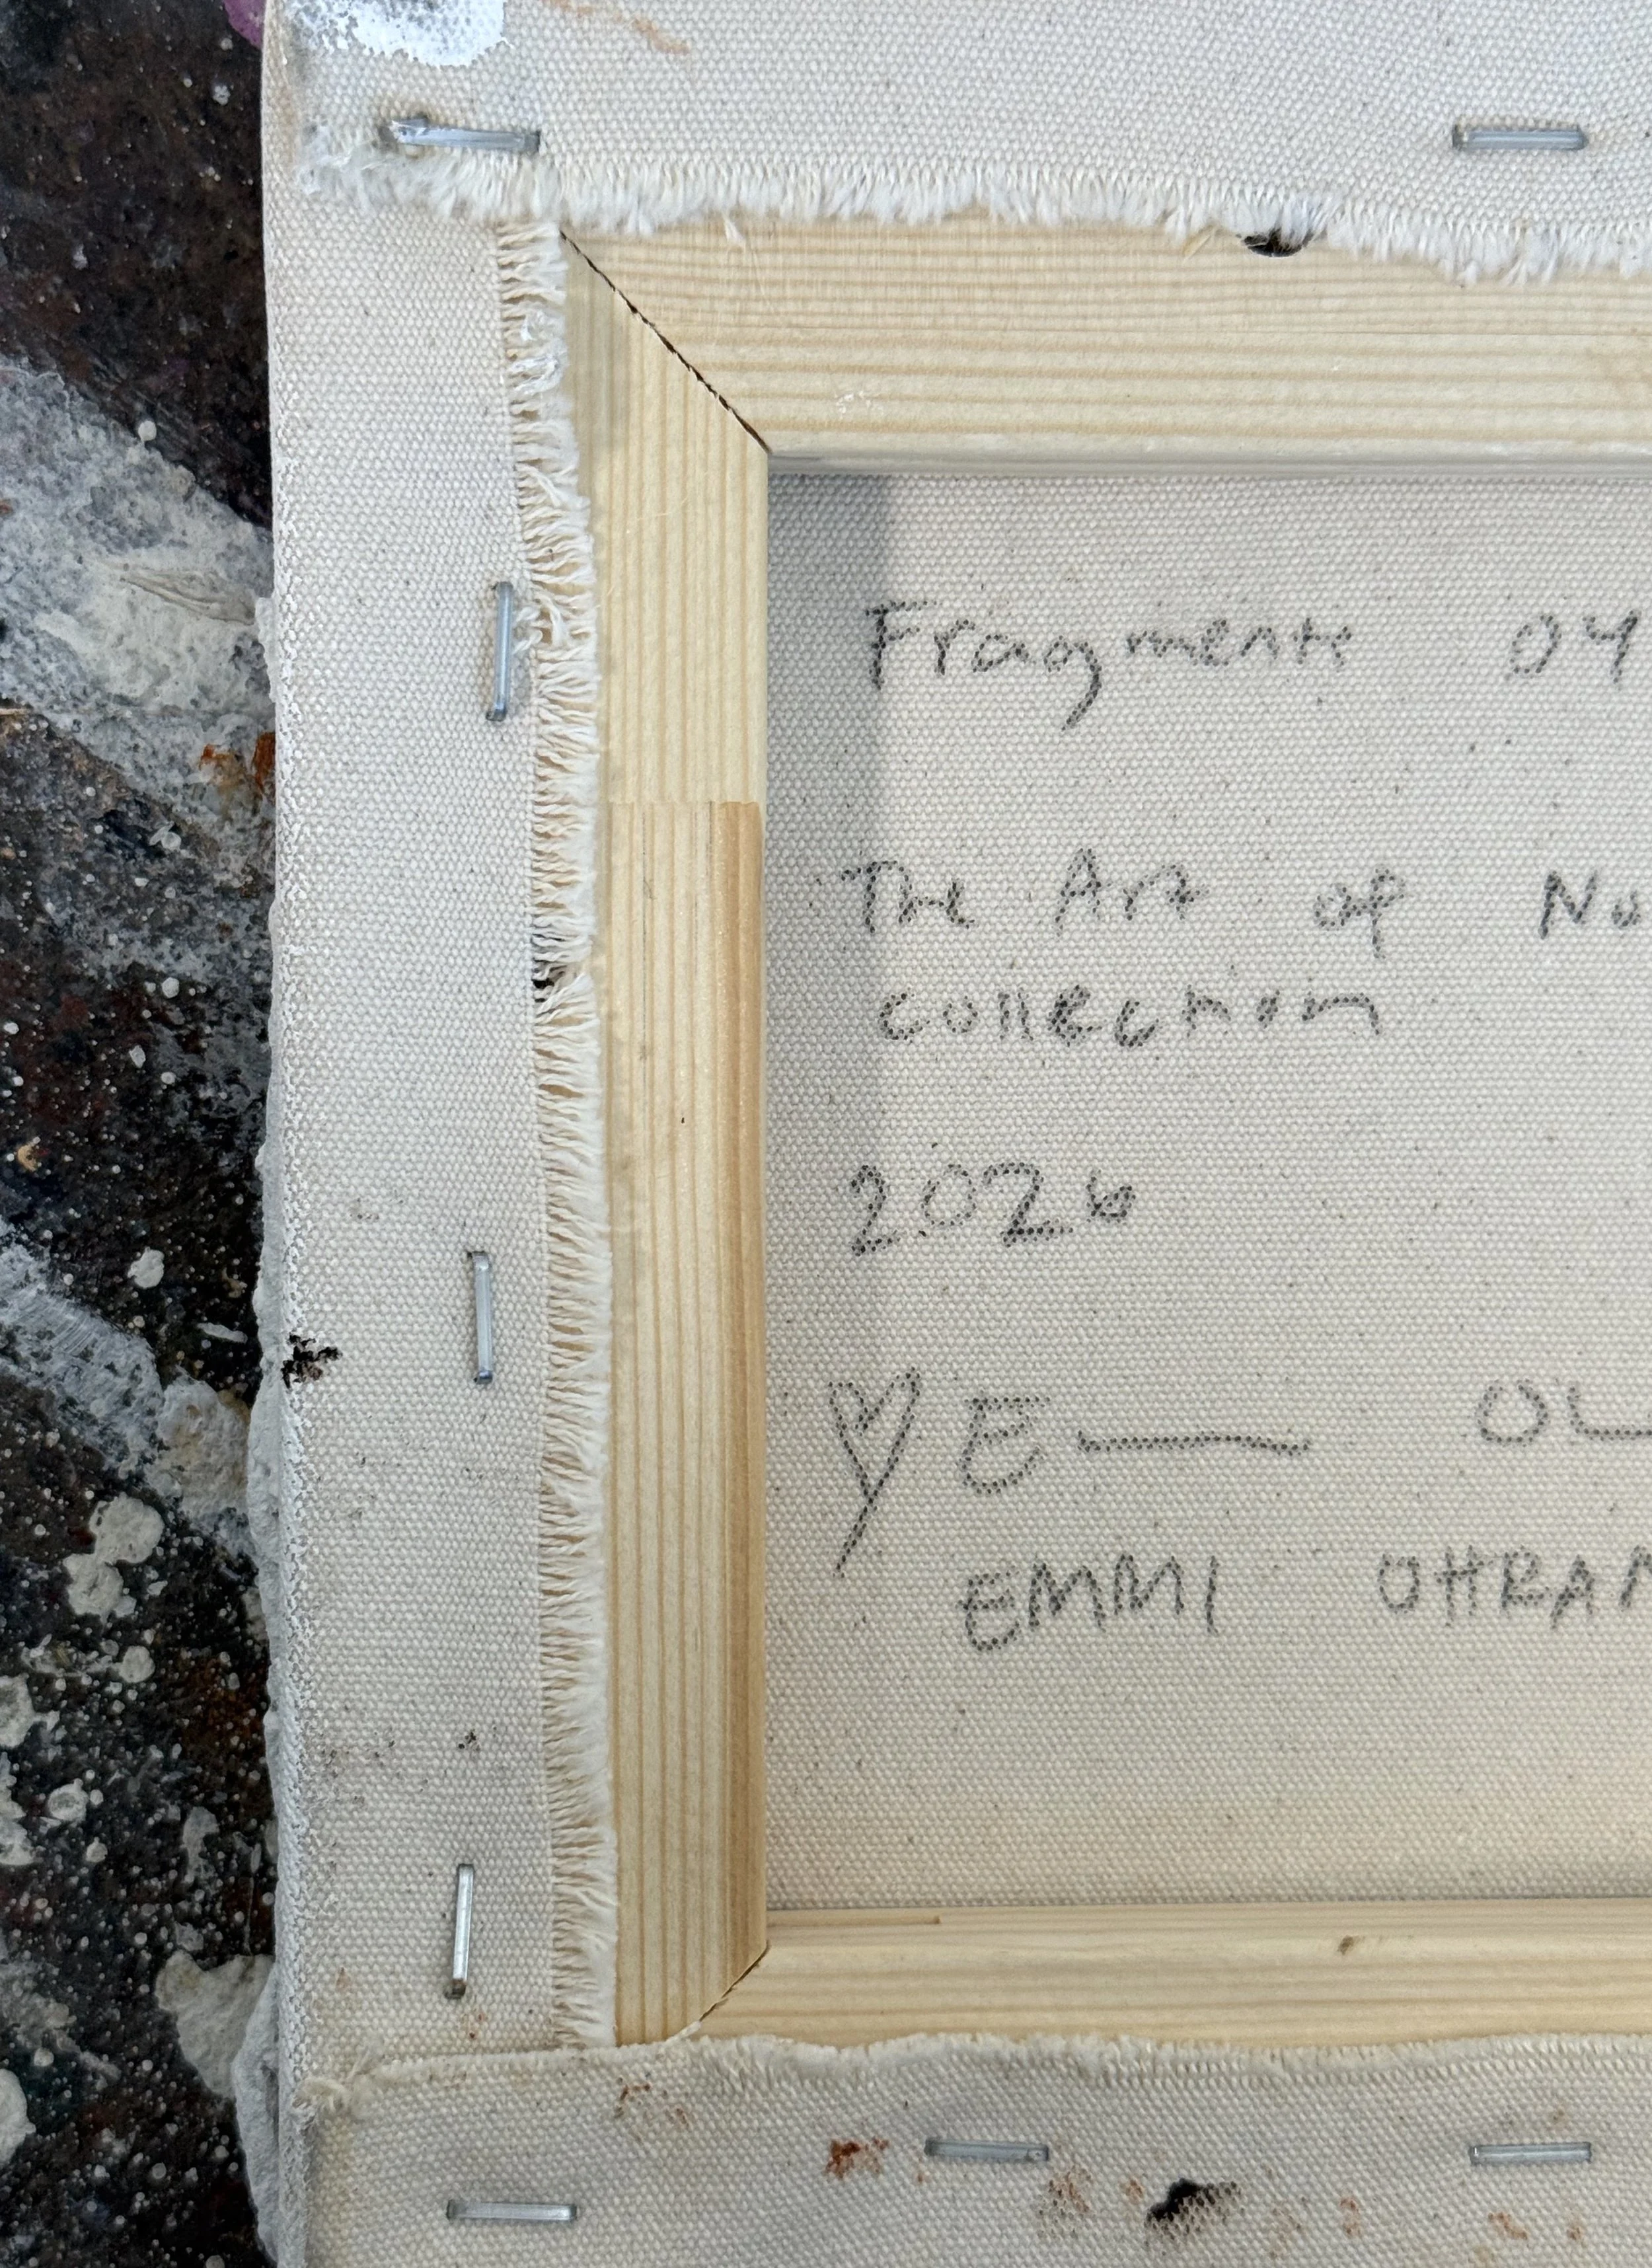 Fragments 04
The Art of No
collection
2026
♡ E—— OL
EMMI OHRAN